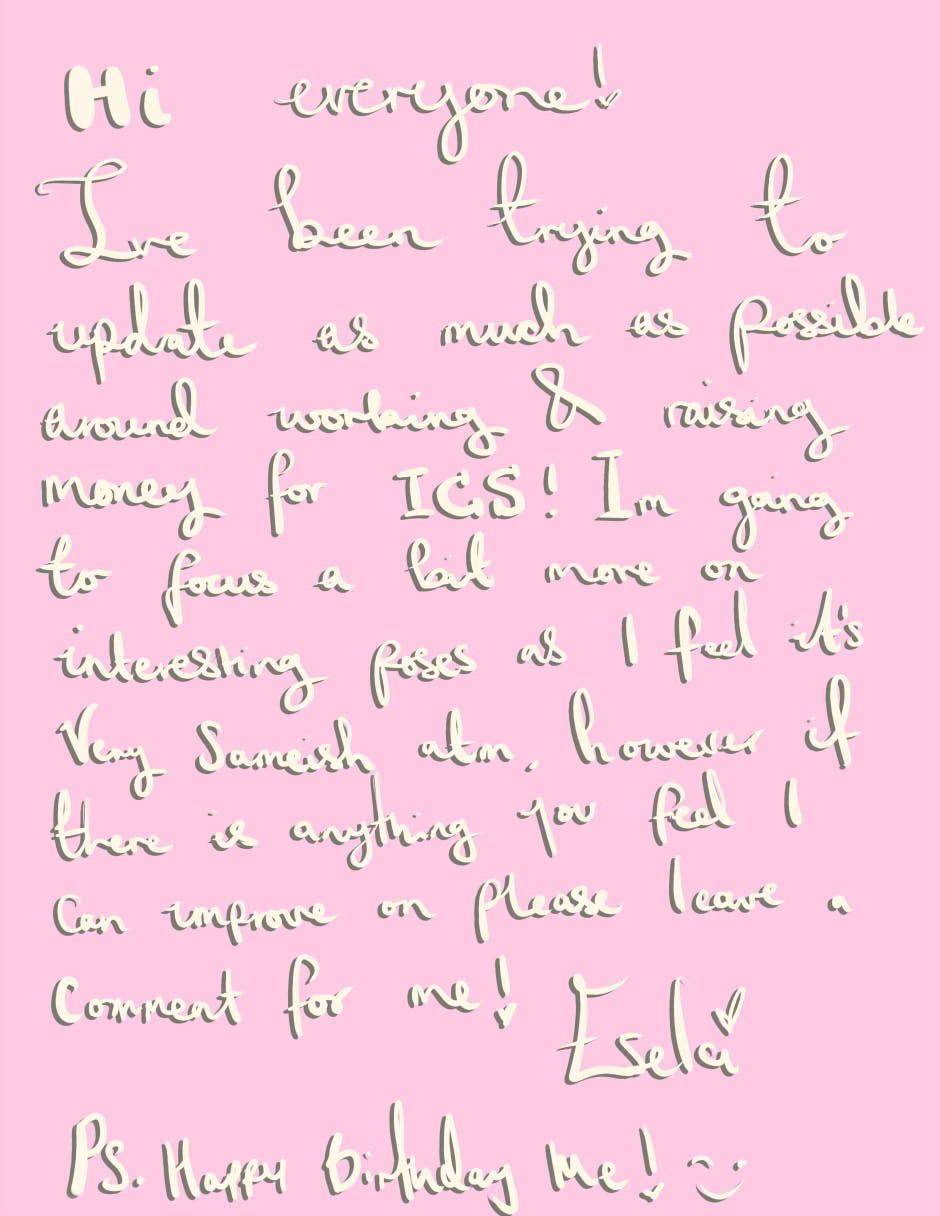 Hi everyone!
I've been trying to
update as much as possible
around working & raising
money for IGS! Im going
to focus a bit more on
interesting poses as I feel it's
Very Sameish atm, however if
there is anything you feel I
Can improve on please leave a
Comment for me!
Esela
PS. Happy Birthday Me! :)